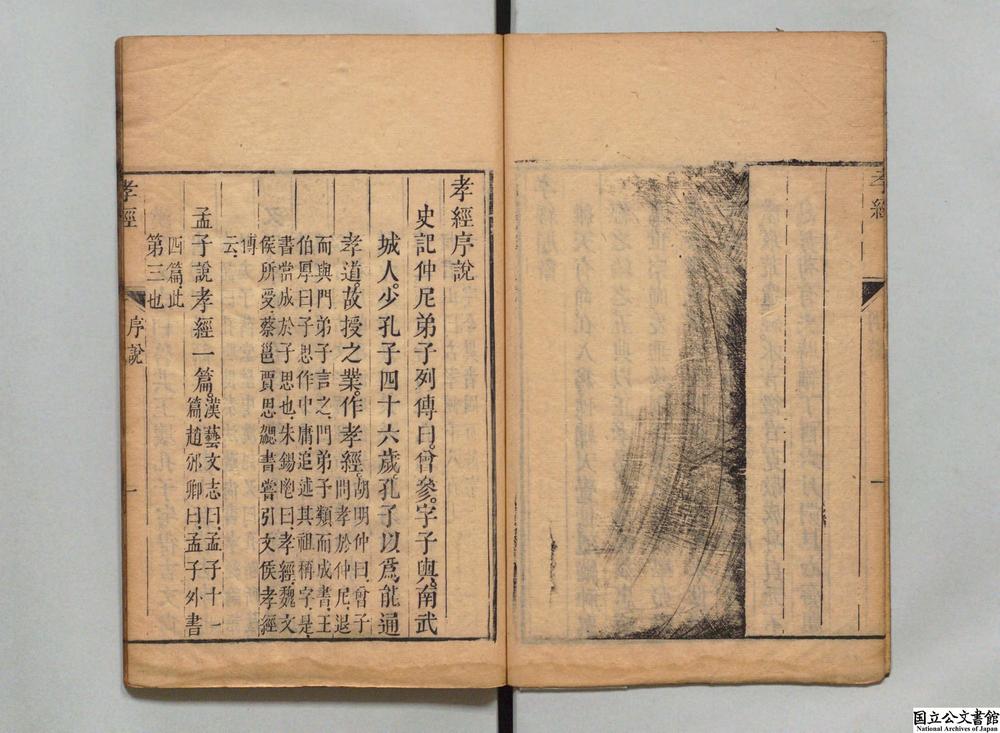 孝經序說
史記仲尼弟子列傳曰。曾參。字子輿。南武
城人。少孔子四十六歲。孔子以爲能通
孝道。故授之業。作孝經。胡明仲曰、曾子
問孝於仲尼、退
而與門弟子言之、門弟子類而成書、王
伯厚曰子思作中庸、追述其祖稱字、是
書當成於子思也、朱錫鬯曰、孝經魏文
侯所受、蔡邕賈思勰書嘗引文侯孝經
傳
云、
孟子說孝經一篇。漢藝文志曰、孟子十一
篇、趙邠卿曰、孟子外書
四篇此
第三也
孝經
序說
一
孝經
一
国立公文書館
National Archives of Japan